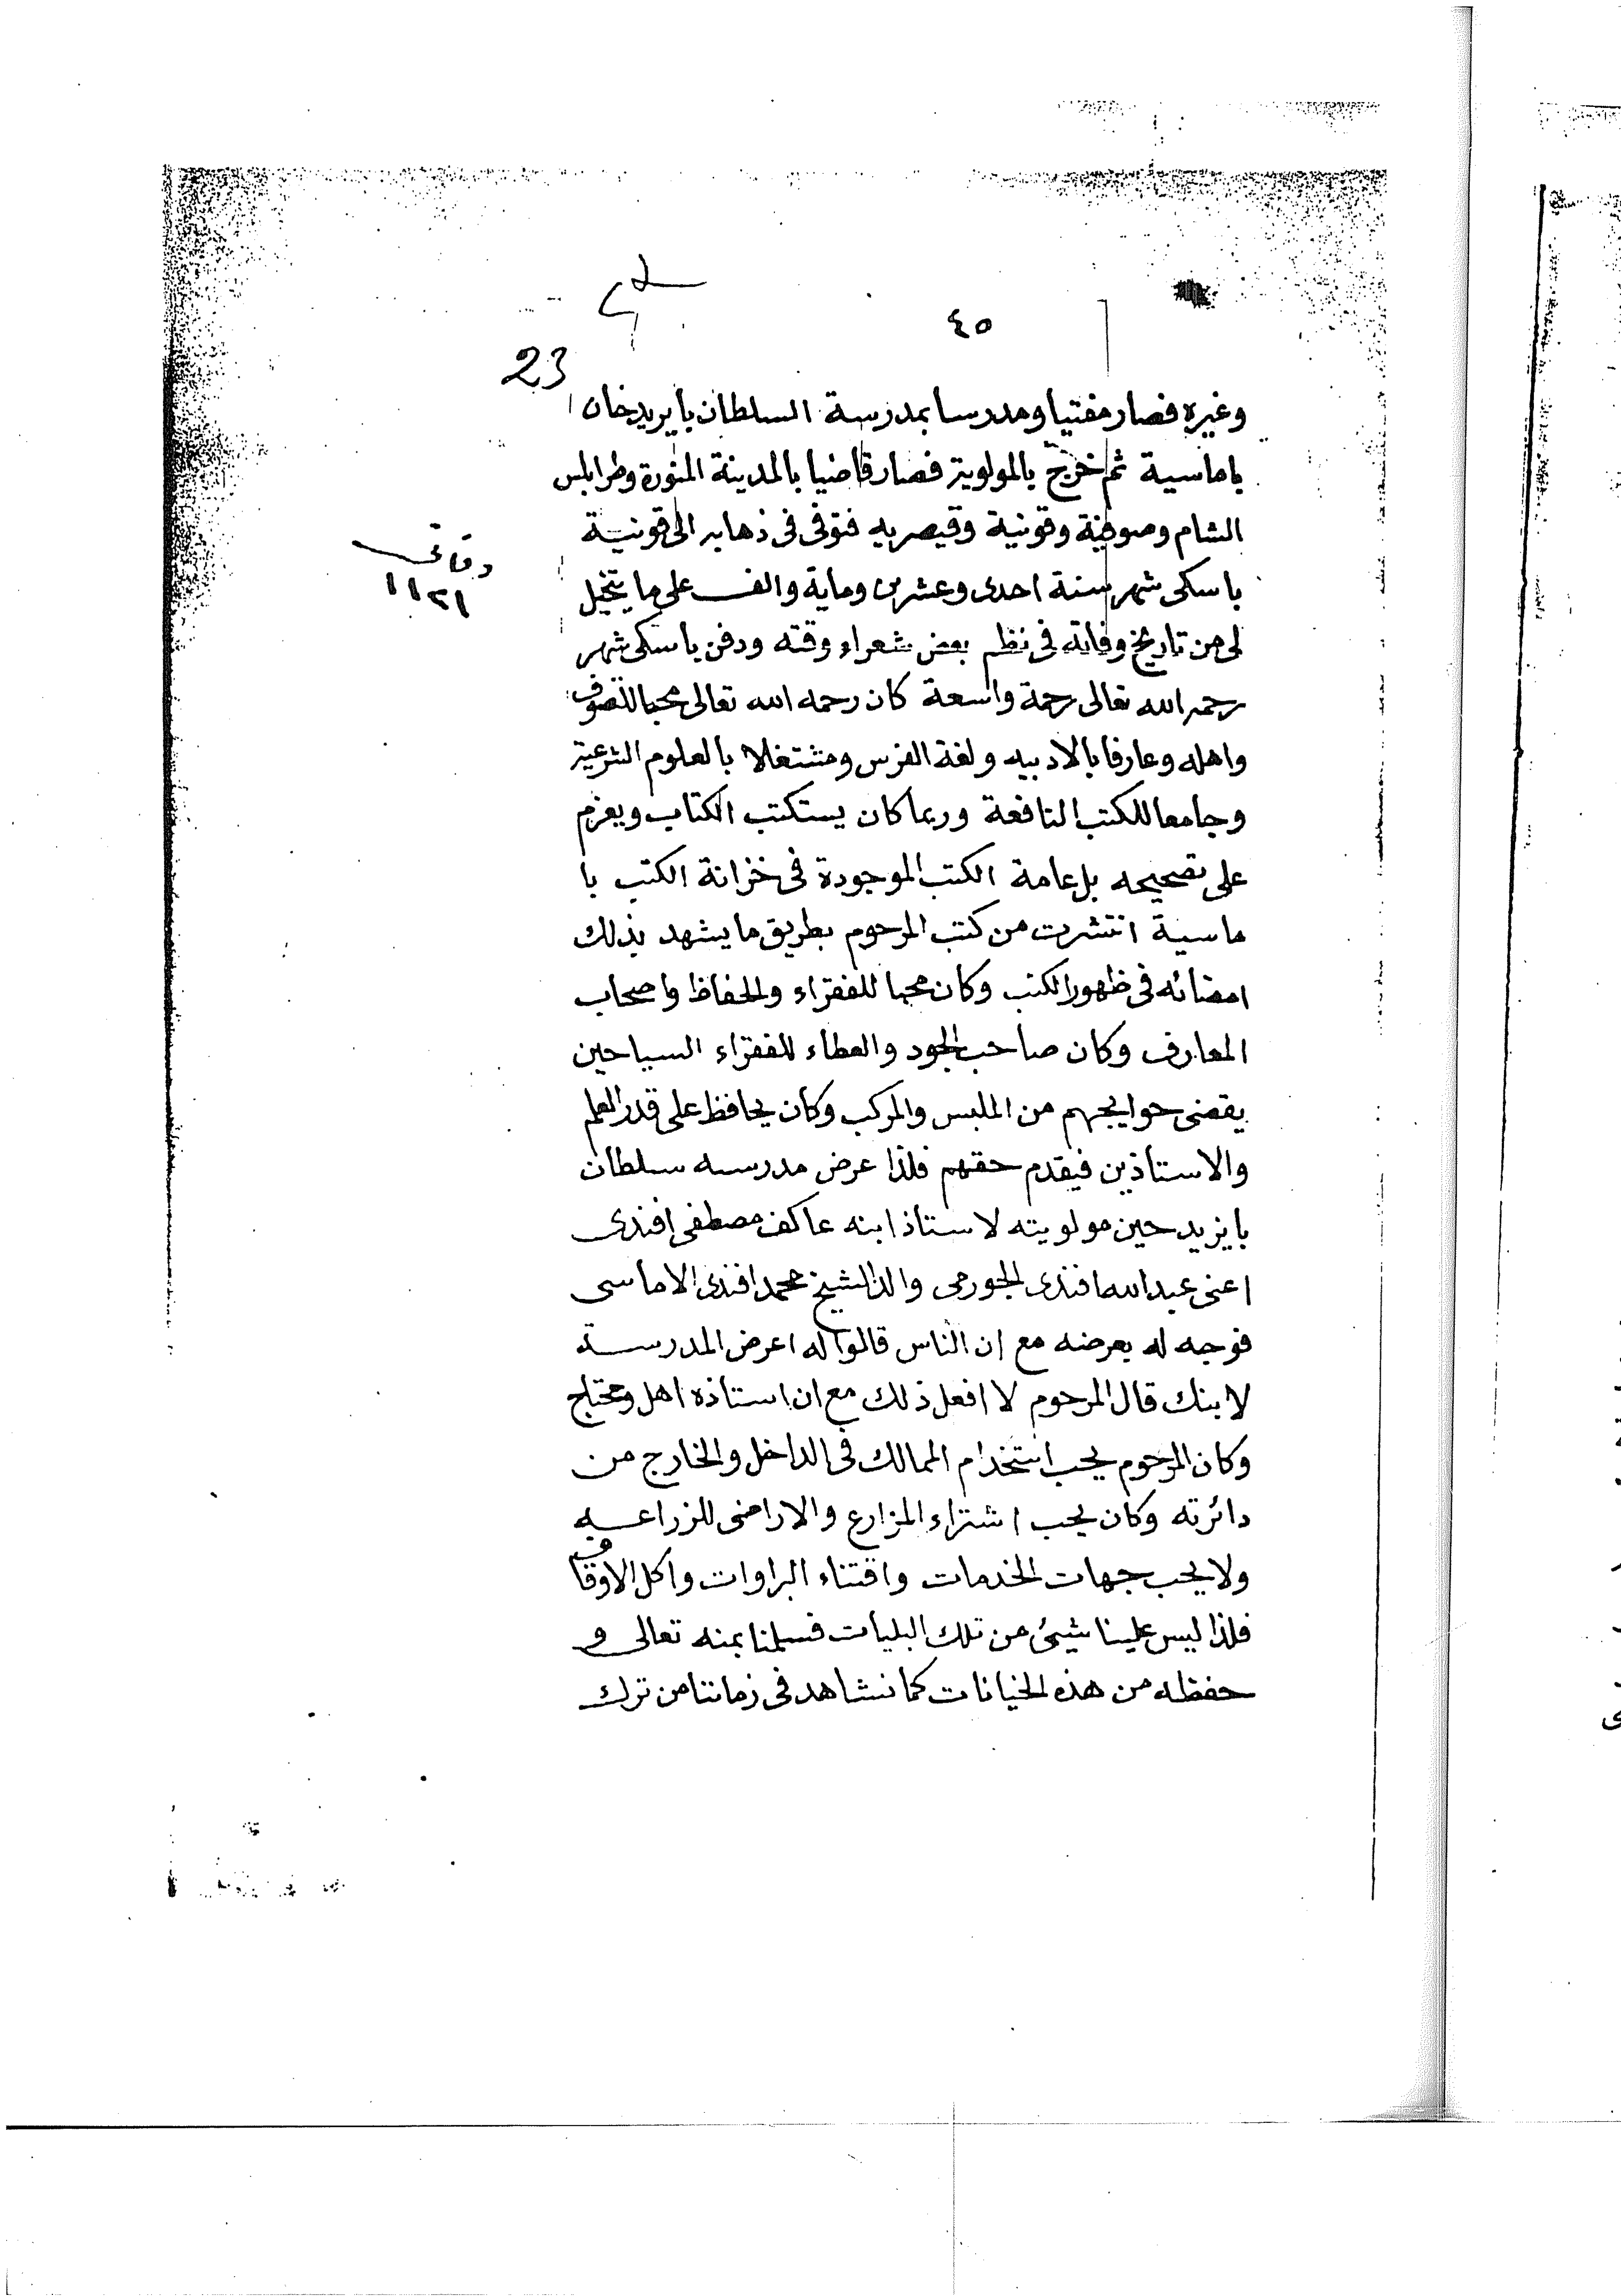 ٤٥
23
وغيره فصار مفتيا ومدرسا بمدرسة السلطان بايزيد خان
باماسية ثم خرج بالمولوية فصار قاضيا بالمدينة المنورة وطرابلس
الشام وصوفية وقونية وقيصريه فتوفى فى ذهابه الى قونية
باسكى شهر سنة احدى وعشرين وماية والف على ما يتخيل
١١٢١
لى من تاريخ وفاته فى نظم بعض شعراء وقته ودفن باسكى شهر
رحمه الله تعالى رحمة واسعة كان رحمه الله تعالى محبا للتصوف
واهله وعارفا بالادبيه ولغة الفرس ومشتغلا بالعلوم الشرعية
وجامعا للكتب النافعة وربما كان يستكتب الكتاب ويعزم
على تصحيحه بل عامة الكتب الموجودة فى خزانة الكتب با
ماسية انتشرت من كتب المرحوم بطريق ما يشهد بذلك
امضائه فى ظهور الكتب وكان محبا للفقراء والحفاظ واصحاب
المعارف وكان صاحب الجود والعطاء للفقراء السياحين
يقضى حوايجهم من الملبس والمركب وكان يحافظ على قدر العلم
والاستاذين فيقدم حقهم فلذا عرض مدرسه سلطان
بايزيد حين مولويته لاستاذ ابنه عاكف مصطفى افندى
اعنى عبد الله افندى الجورمى والد الشيخ محمد افندى الاماسى
فوجه له بعرضه مع ان الناس قالوا له اعرض المدرسة
لابنك قال المرحوم لا افعل ذلك مع ان استاذه اهل ومحتاج
وكان المرحوم يحب استخدام الممالك فى الداخل والخارج من
دائرته وكان يحب اشتراء المزارع والاراضى للزراعيه
ولا يحب جهات الخدمات واقتناء البراوات واكل الاوقاف
فلذا ليس علينا شيئ من تلك البليات فسلمنا بمنه تعالى و
حفظه من هذه الخيانات كما نشاهد فى زماننا من ترك